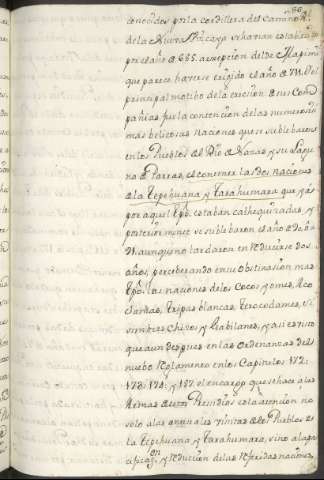 conocidos pr. la cordillera del Camino Rl.
de la Nueva Vizcaya se harian establecido
pr. el año de 685. a excepcion del de Mapimi
que parece haverse erigido el año de 711. El
principal motibo de la ereccion de sus Com-
pañias fue la contencion de las numerosas
mas belicosas Naciones que se sublebaron
en los Pueblos del Rio de Nazas, y su Lagu-
na de Parras, el contener las dos naciones
de la Tepehuana, y Tarahumara que ya
por aquel tpo. estaban cathequizadas, y
posteriormente se sublebaron el año de
aunque no tardaron en reducirse dos
años, perceberando en su obstinacion mas
tpo. las naciones de los Cocoyomes, Aco-
clames, tripas blancas, terocodames, Si-
simbres, Chizos, y Gabilanes, y asi es visto
que aun despues en las Ordenanzas del
nuebo Reglamento en los Capitulos 172:
173: 174: y 187. el encargo que se hace a las
Armas de estos Presidios es la atencion no
solo a las annuales visitas de los Pueblos de
la Tepehuana, y Tarahumara, sino a la pa-
cificazon. y reducion de las referidas naciones,